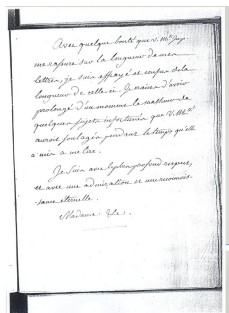 Avec quelque bonté que V. M.té Imp.
me rassure sur la longueur de mes
lettres, je suis effrayé et confus de la
longueur de celle-ci. Je crains d'avoir
prolongé d'un moment le malheur de
quelques sujets infortunés que V. M.té
auroit soulagés pendant le temps qu'elle
a mis à me lire.
Je suis avec le plus profond respect,
et avec une admiration et une reconnois-
sance eternelle.
Madame &c.